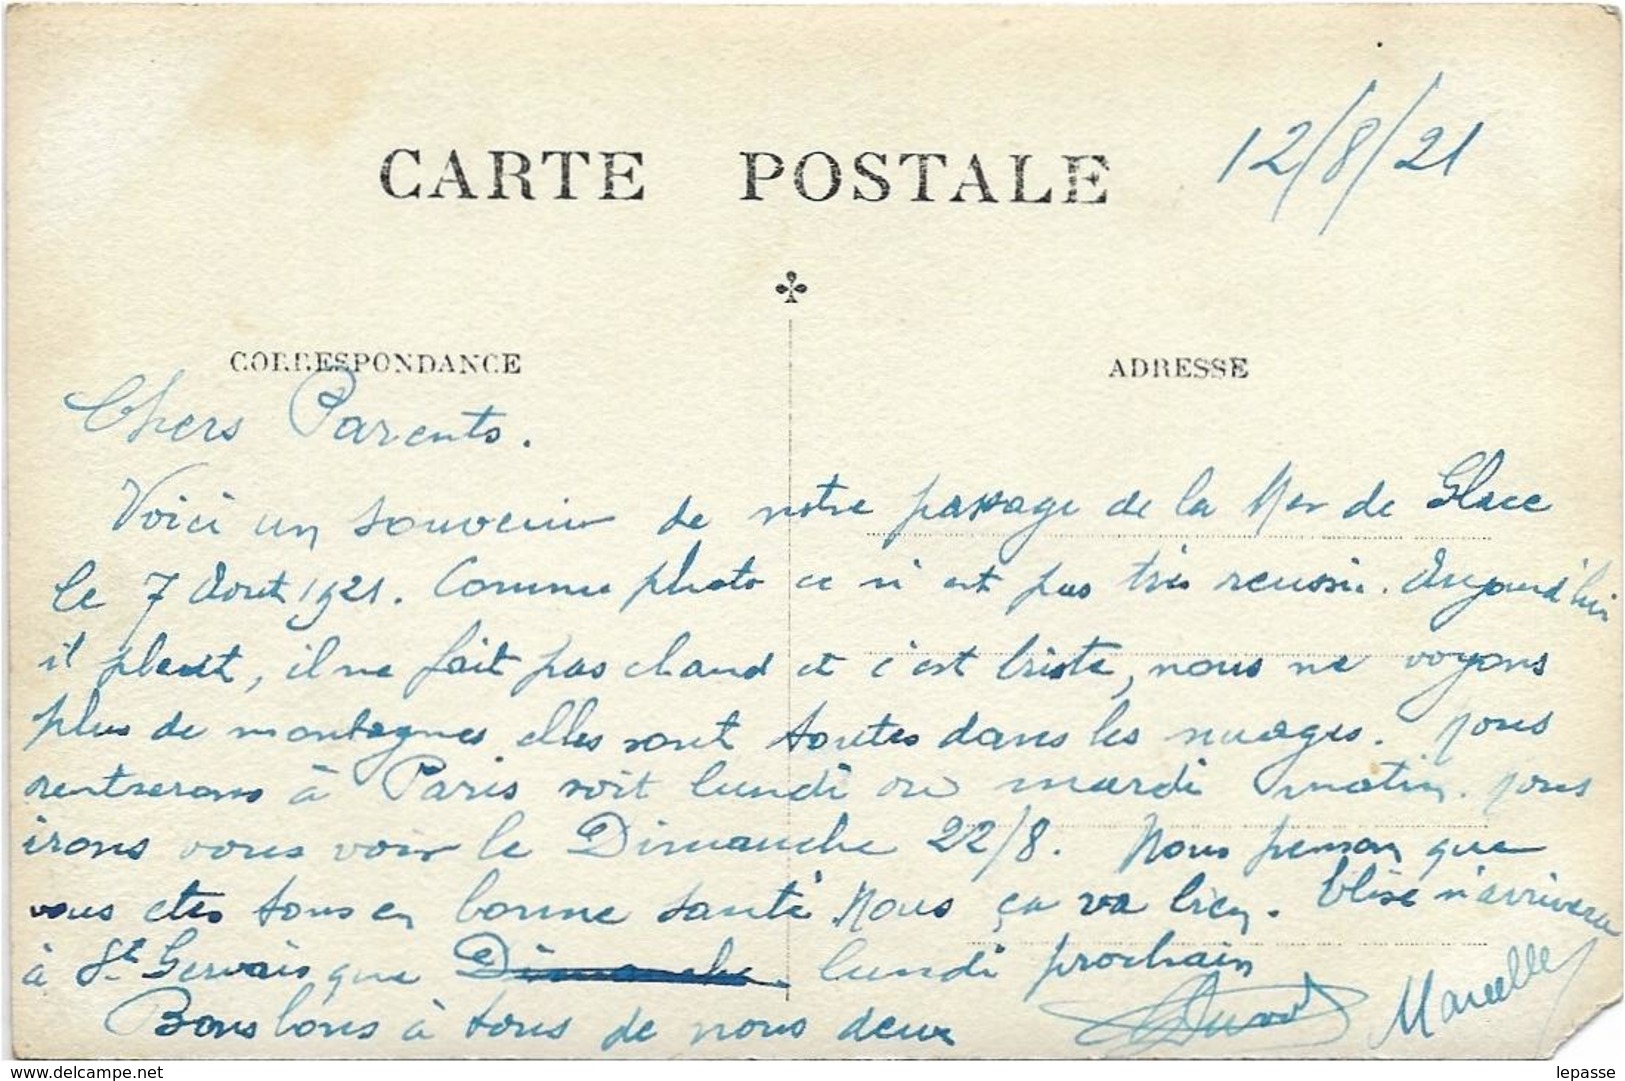 12/8/21
CARTE POSTALE
CORRESPONDANCE
ADRESSE
Chers Parents.
Voici un souvenir de notre passage de la Mer de Glace
le 7 Aout 1921. Comme photo ce n'est pas très reussie. Aujourd'hui
il pleut, il ne fait pas chaud et c'est triste, nous ne voyons
plus de montagnes elles sont toutes dans les nuages. Nous
rentrerons à Paris soit lundi ou mardi matin. Nous
irons vous voir le Dimanche 22/8. Nous pensons que
vous etes tous en bonne santé Nous ça va bien. Elise n'arrivera
à St Gervais que Dimanche lundi prochain
Bons baisers à tous de nous deux
Marcelle
delcampe.net
lepasse